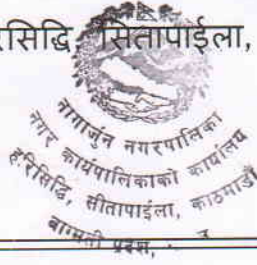 रिसिद्धि, सितापाईला,
नागार्जुन नगरपालिका
नगर कार्यपालिकाको कार्यालय
हरिसिद्धि, सीतापाईला, काठमाडौं
बाग्मती प्रदेश,